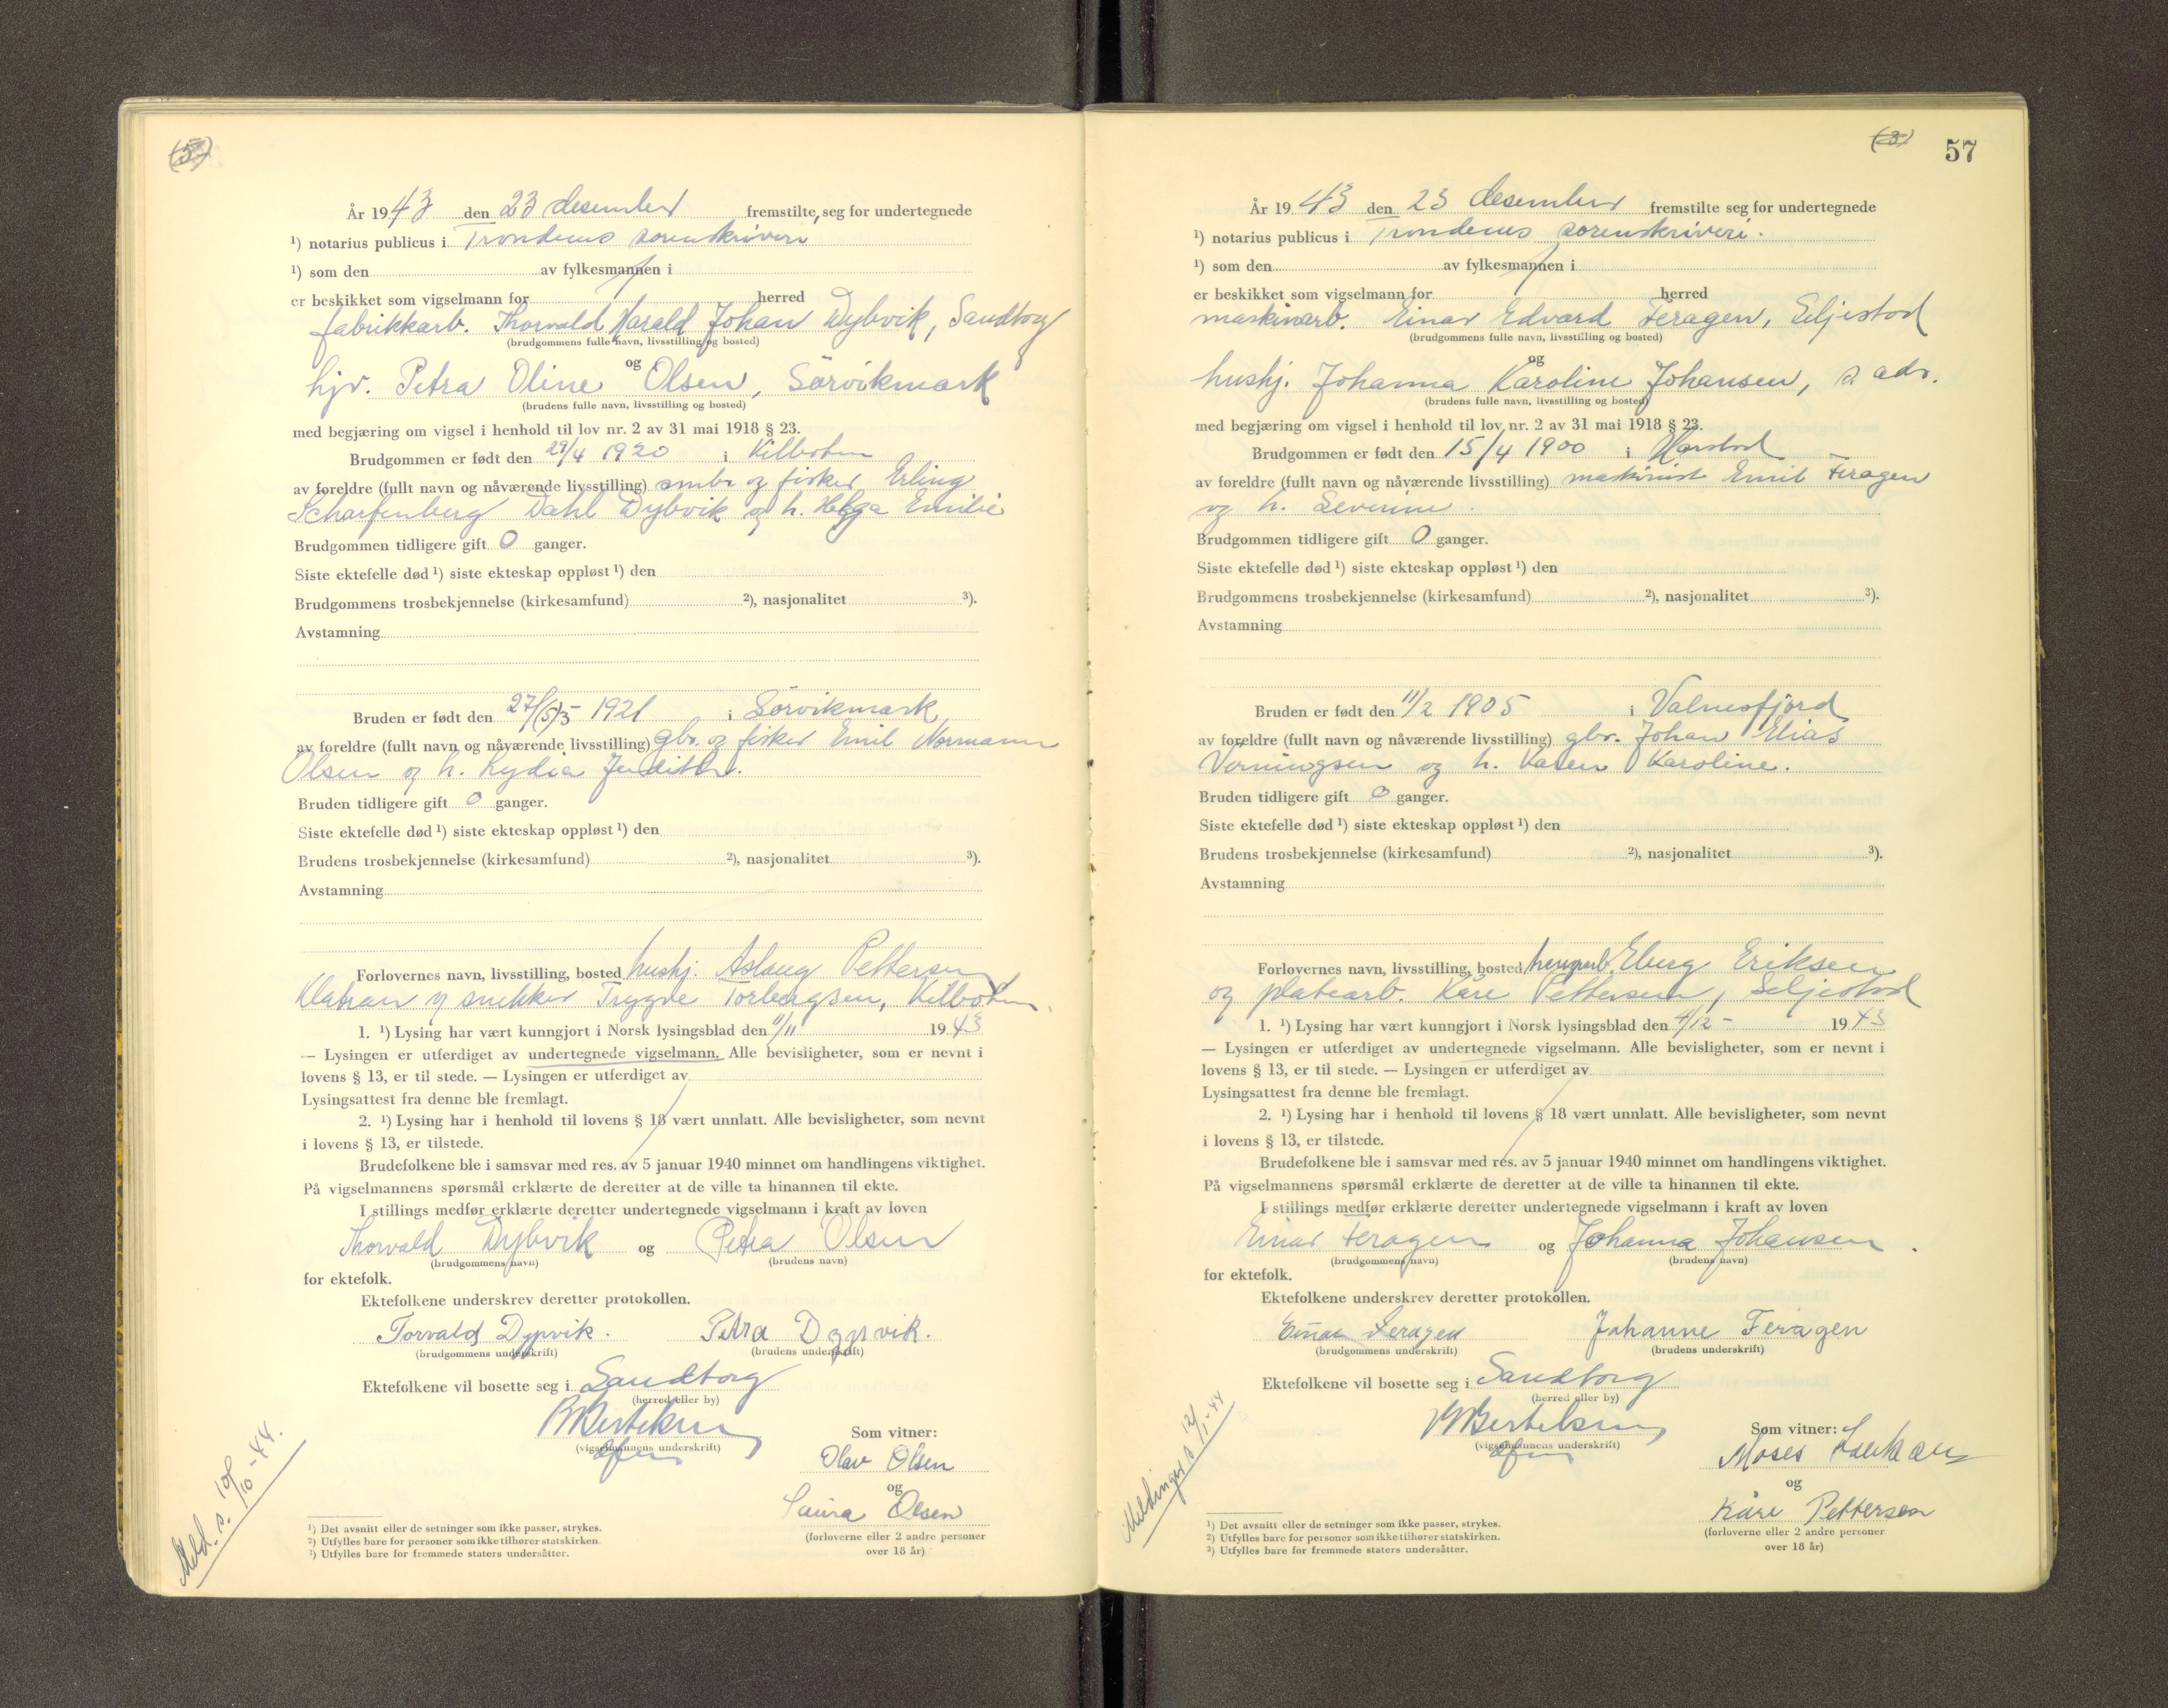 (5)
År 1943 den 23 desember fremstilte seg for undertegnede
¹) notarius publicus i Trondenes sorenskriveri
¹) som den av fylkesmannen i
er beskikket som vigselmann for herred
fabrikkarb. Thorvald Harald Johan Dybvik, Sandtorg
(brudgommens fulle navn, livsstilling og bosted)
og
hjv. Petra Oline Olsen, Sørvikmark
(brudens fulle navn, livsstilling og bosted)
med begjæring om vigsel i henhold til lov nr. 2 av 31 mai 1918 § 23.
Brudgommen er født den 29/4 1920 i Kilbotn
av foreldre (fullt navn og nåværende livsstilling) smbr og fisker Erling
Scharfenberg Dahl Dybvik og h. Helga Emilie
Brudgommen tidligere gift 0 ganger.
Siste ektefelle død ¹) siste ekteskap oppløst ¹) den
Brudgommens trosbekjennelse (kirkesamfund) ²), nasjonalitet ³).
Avstamning
Bruden er født den 27/(5)5 1921 i Sørvikmark
av foreldre (fullt navn og nåværende livsstilling) gbr. og fisker Emil Normann
Olsen og h. Lydia Jendithe.
Bruden tidligere gift 0 ganger.
Siste ektefelle død ¹) siste ekteskap oppløst ¹) den
Brudens trosbekjennelse (kirkesamfund) ²), nasjonalitet ³).
Avstamning
Forlovernes navn, livsstilling, bosted hushj. Aslaug Pettersen
Klatran og snekker Trygve Torbergsen, Kilbotn
1. ¹) Lysing har vært kunngjort i Norsk lysingsblad den 11/11 1943
— Lysingen er utferdiget av undertegnede vigselmann. Alle bevisligheter, som er nevnt i
lovens § 13, er til stede. — Lysingen er utferdiget av
Lysingsattest fra denne ble fremlagt.
2. ¹) Lysing har i henhold til lovens § 18 vært unnlatt. Alle bevisligheter, som nevnt
i lovens § 13, er tilstede.
Brudefolkene ble i samsvar med res. av 5 januar 1940 minnet om handlingens viktighet.
På vigselmannens spørsmål erklærte de deretter at de ville ta hinannen til ekte.
I stillings medfør erklærte deretter undertegnede vigselmann i kraft av loven
Thorvald Dybvik og Petra Olsen
(brudgommens navn) (brudens navn)
for ektefolk.
Ektefolkene underskrev deretter protokollen.
Torvald Dypvik. Petra Dypvik.
(brudgommens underskrift) (brudens underskrift)
Ektefolkene vil bosette seg i Sandtorg
(herred eller by)
Bertelsen
(vigselmannens underskrift)
Som vitner:
Olav Olsen
og
Laura Olsen
(forloverne eller 2 andre personer
over 18 år)
Meld. s. 10/10-44.
¹) Det avsnitt eller de setninger som ikke passer, strykes.
²) Utfylles bare for personer som ikke tilhører statskirken.
³) Utfylles bare for fremmede staters undersåtter.
(3)
57
År 1943 den 23 desember fremstilte seg for undertegnede
¹) notarius publicus i Trondenes sorenskriveri.
¹) som den av fylkesmannen i
er beskikket som vigselmann for herred
maskinarb. Einar Edvard Feragen, Seljestad
(brudgommens fulle navn, livsstilling og bosted)
og
hushj. Johanna Karoline Johansen, s. adr.
(brudens fulle navn, livsstilling og bosted)
med begjæring om vigsel i henhold til lov nr. 2 av 31 mai 1918 § 23.
Brudgommen er født den 15/4 1900 i Harstad
av foreldre (fullt navn og nåværende livsstilling) maskinist Emil Feragen
og h. Severine.
Brudgommen tidligere gift 0 ganger.
Siste ektefelle død ¹) siste ekteskap oppløst ¹) den
Brudgommens trosbekjennelse (kirkesamfund) ²), nasjonalitet ³).
Avstamning
Bruden er født den 11/2 1905 i Valnesfjord
av foreldre (fullt navn og nåværende livsstilling) gbr. Johan Elias
og h. Karen Karoline.
Bruden tidligere gift 0 ganger.
Siste ektefelle død ¹) siste ekteskap oppløst ¹) den
Brudens trosbekjennelse (kirkesamfund) ²), nasjonalitet ³).
Avstamning
Forlovernes navn, livsstilling, bosted Eberg Eriksen
og platearb. Kåre Pettersen, Seljestad
1. ¹) Lysing har vært kunngjort i Norsk lysingsblad den 4/12- 1943
— Lysingen er utferdiget av undertegnede vigselmann. Alle bevisligheter, som er nevnt i
lovens § 13, er til stede. — Lysingen er utferdiget av
Lysingsattest fra denne ble fremlagt.
2. ¹) Lysing har i henhold til lovens § 18 vært unnlatt. Alle bevisligheter, som nevnt
i lovens § 13, er tilstede.
Brudefolkene ble i samsvar med res. av 5 januar 1940 minnet om handlingens viktighet.
På vigselmannens spørsmål erklærte de deretter at de ville ta hinannen til ekte.
I stillings medfør erklærte deretter undertegnede vigselmann i kraft av loven
Einar Feragen og Johanna Johansen.
(brudgommens navn) (brudens navn)
for ektefolk.
Ektefolkene underskrev deretter protokollen.
Einar Feragen Johanne Feragen
(brudgommens underskrift) (brudens underskrift)
Ektefolkene vil bosette seg i Sandtorg
(herred eller by)
Bertelsen
(vigselmannens underskrift)
Som vitner:
Moses
og
Kåre Pettersen
(forloverne eller 2 andre personer
over 18 år)
Meldinger s 12/1-44
¹) Det avsnitt eller de setninger som ikke passer, strykes.
²) Utfylles bare for personer som ikke tilhører statskirken.
³) Utfylles bare for fremmede staters undersåtter.